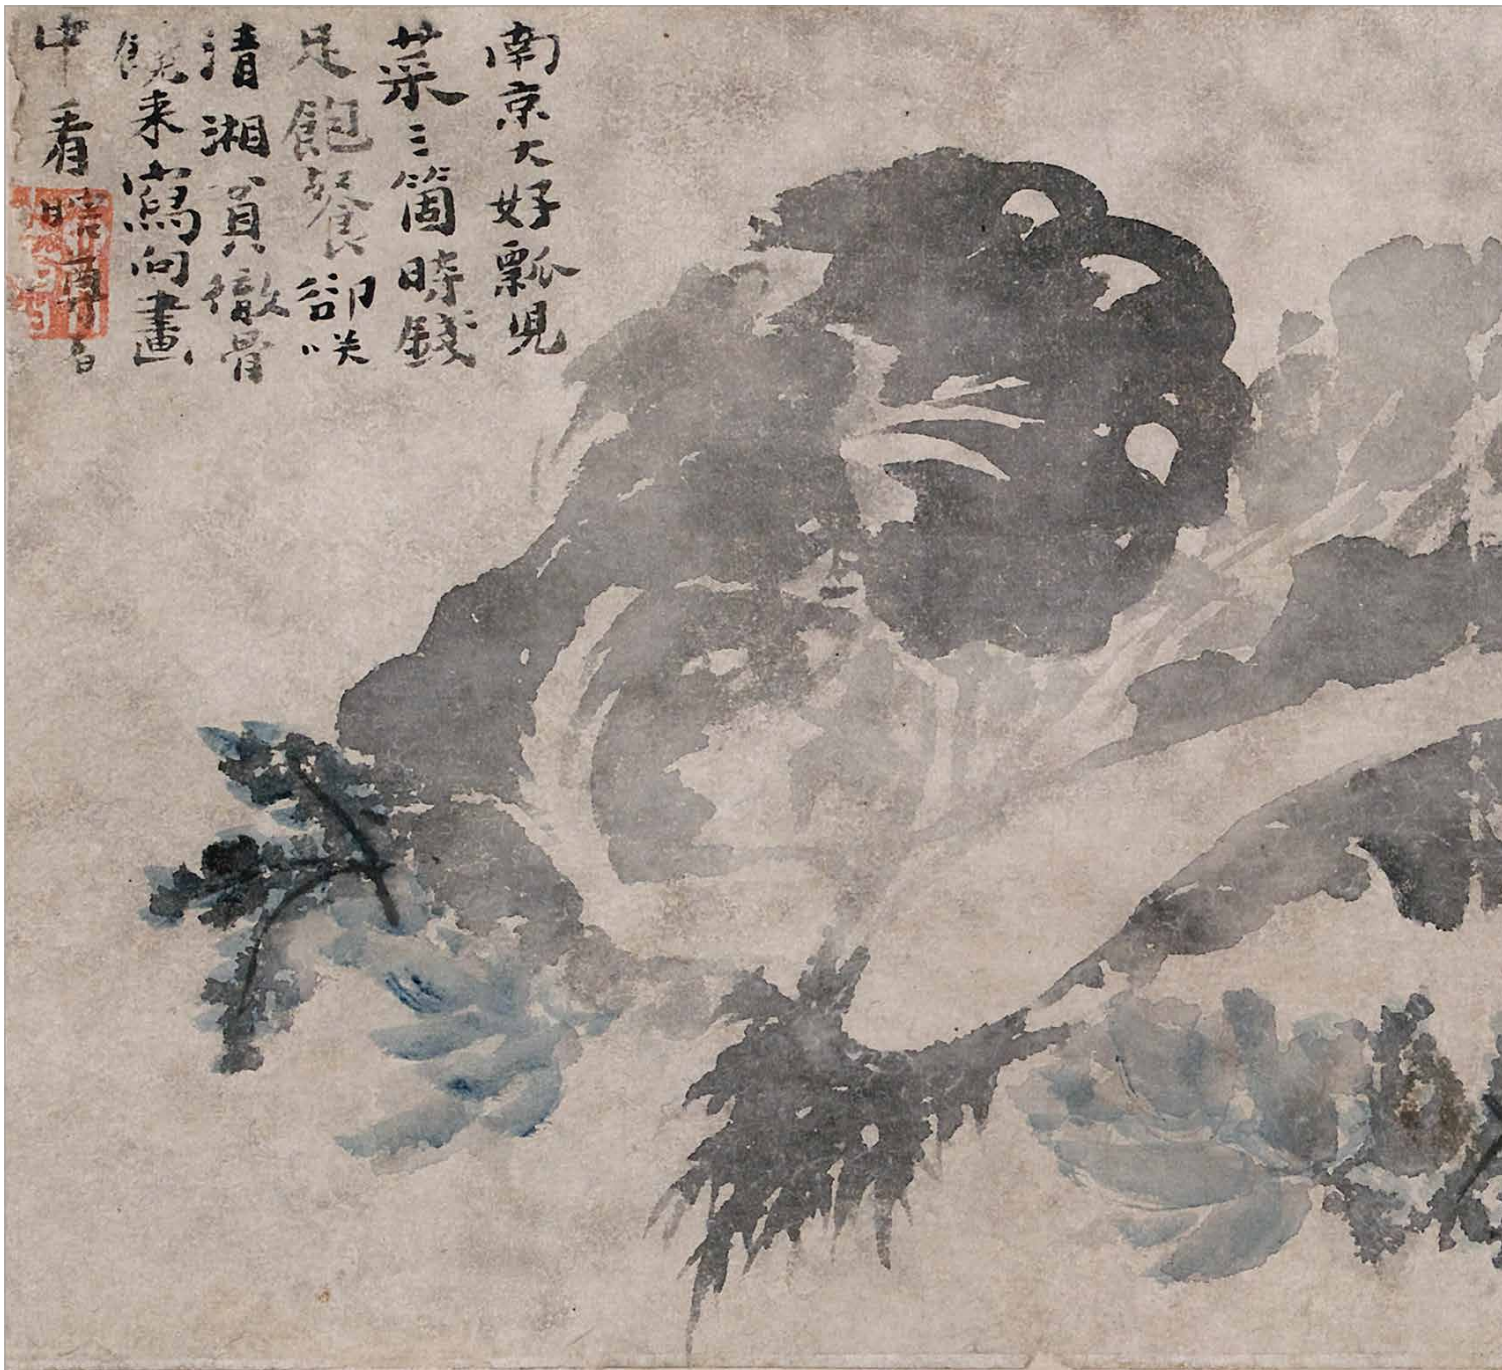 南京大好瓢兒
菜三箇時錢
足飽餐卻咲
清湘貧徹骨
饞来寫向畫
中看瞎尊者